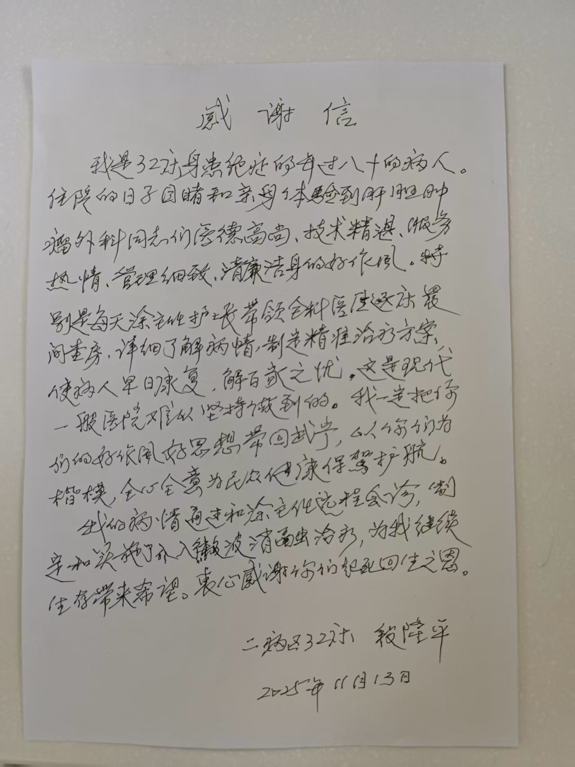 感谢信
我是32床身患绝症的年过八十的病人。
住院的日子目睹和亲身体验到肝胆肿
瘤外科同志们医德高尚、技术精湛、服务
热情、管理细致、清廉洁身的好作风。特
别是每天涂主任护士长带领全科医生逐床
问查房,详细了解病情,制定精准治疗方案,
使病人早日康复,解百家之忧。这是现代
一般医院难以坚持做到的。我一定把你
们的好作风好思想带回武宁,以你们为
楷模,全心全意为民众健康保驾护航。
我的病情再进和涂主任远程会诊,制
定和实施了介入微波消融治疗,为我继续
生存带来希望。衷心感谢你们起死回生之恩。
二病区32床 段隆平
2025年11月13日